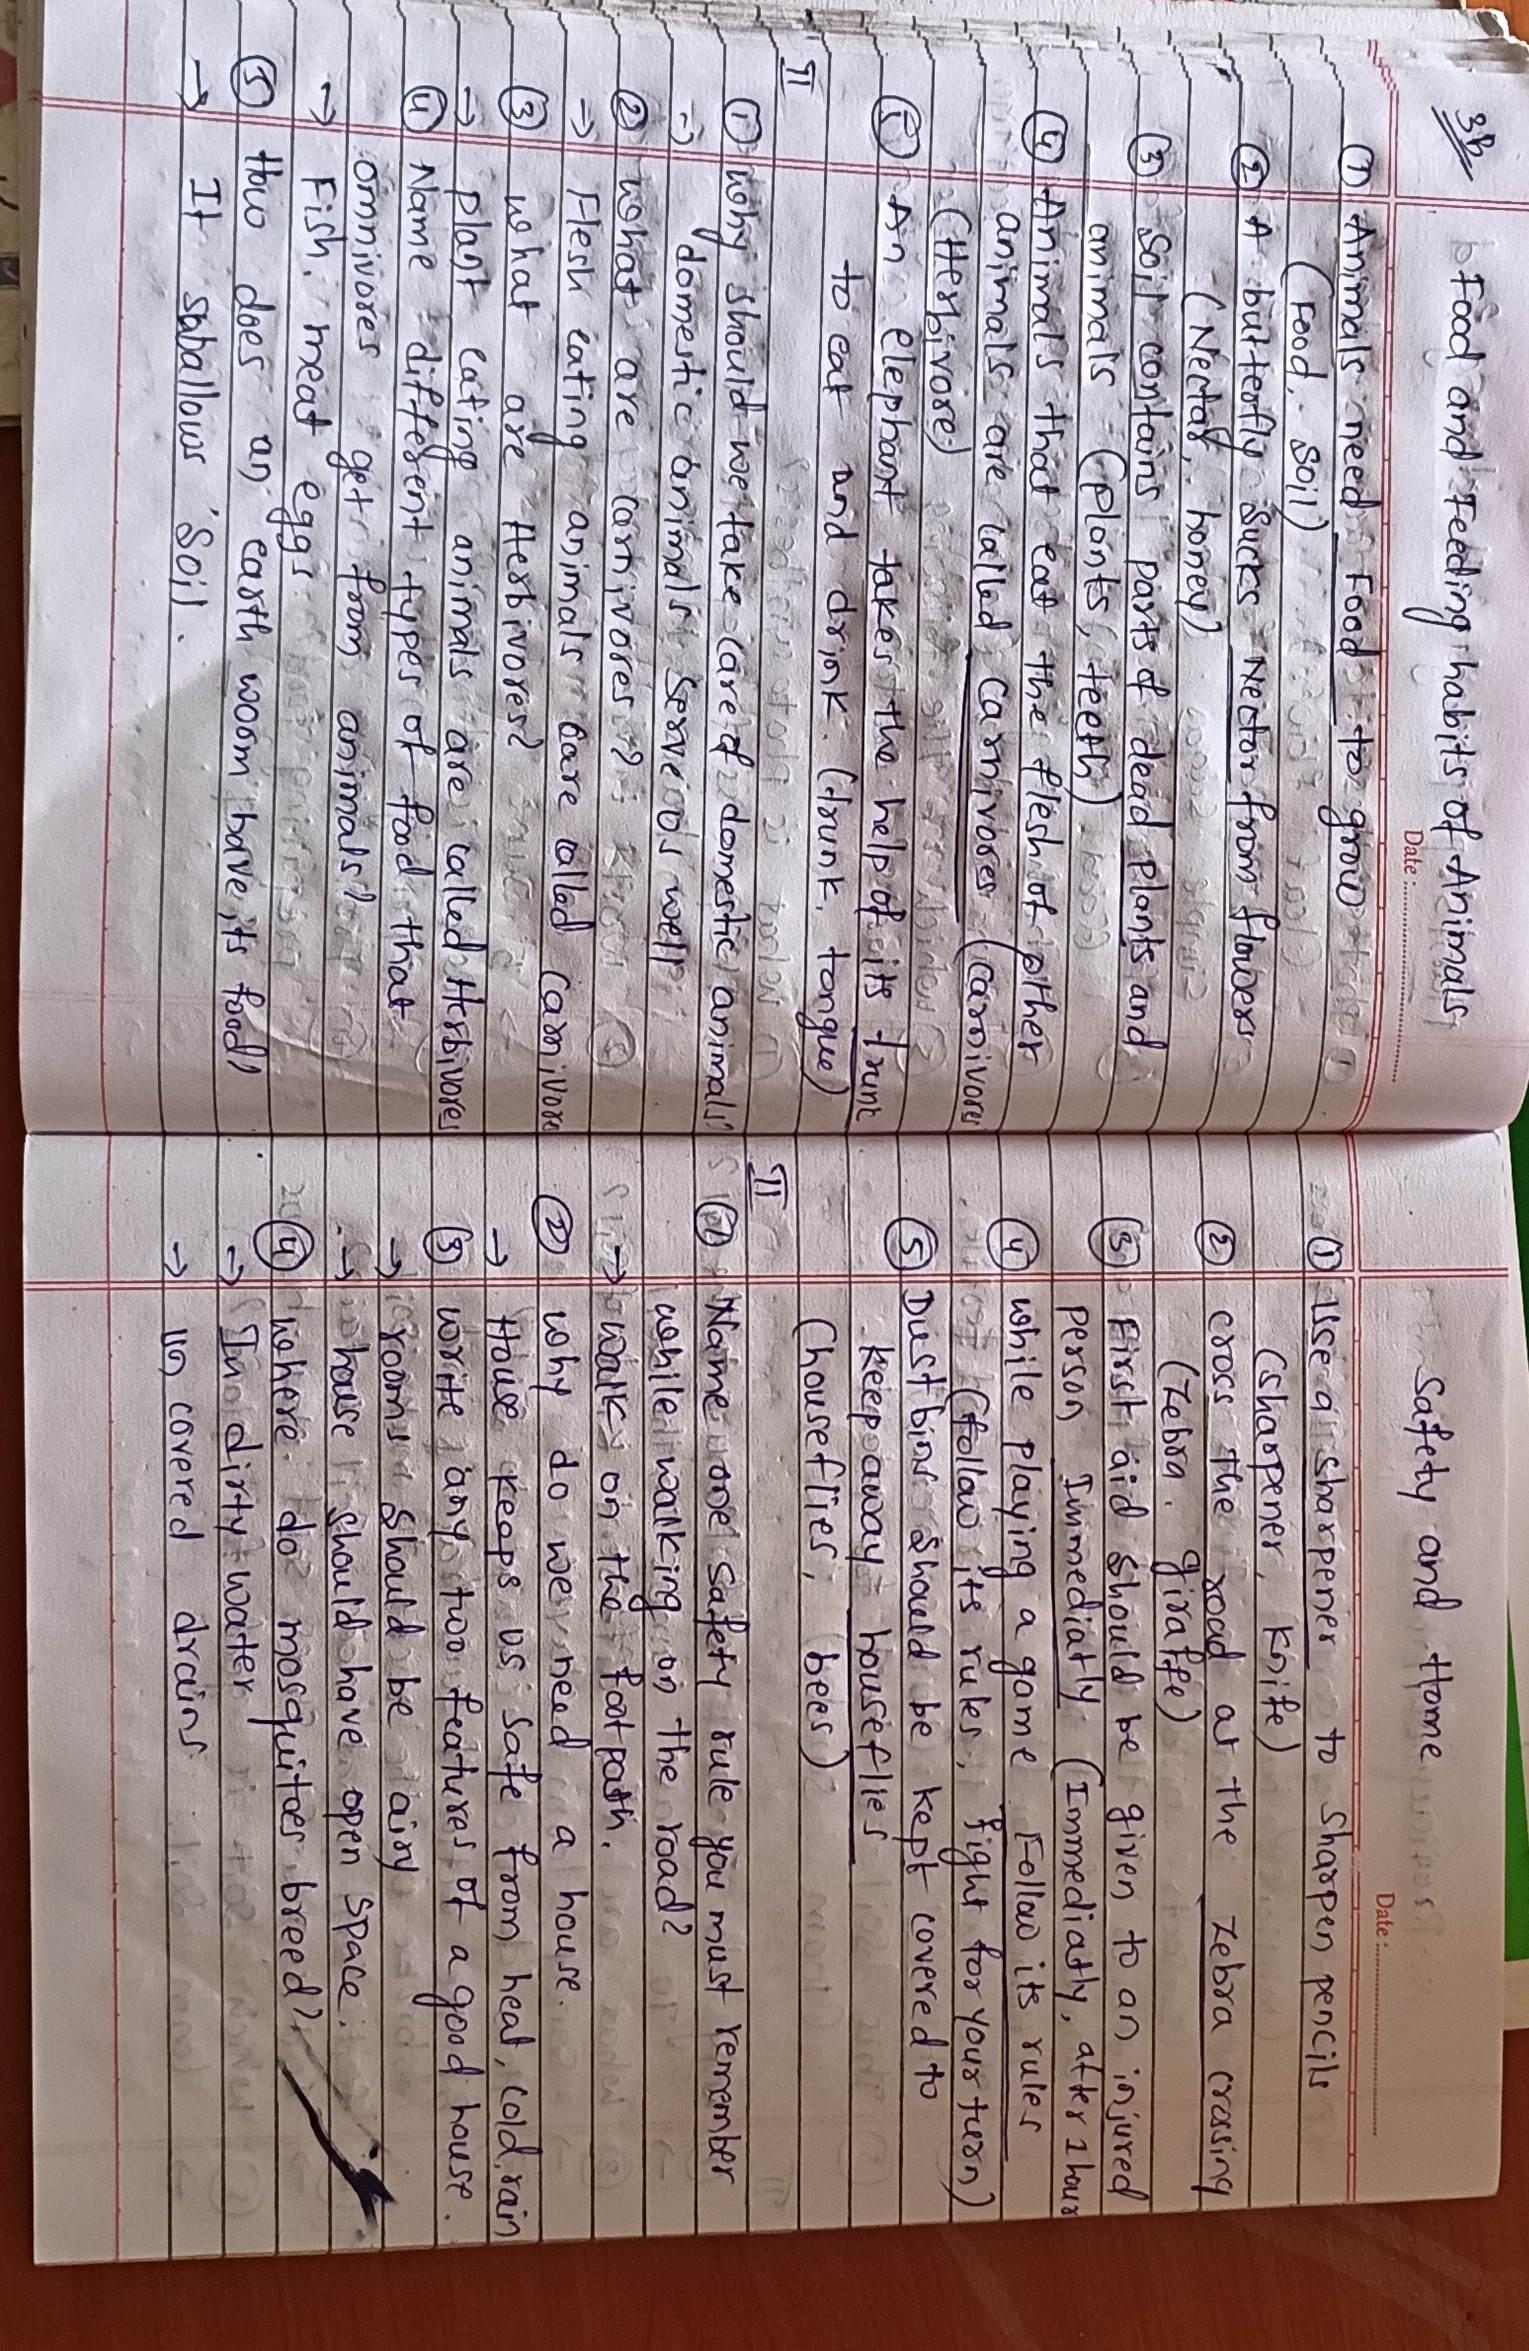 3rd
Food and Feeding habits of Animals
Date :
① Animals need Food to grow
(Food, Soil)
② A butterfly sucks Nector from flowers
(Nectar, honey)
③ Soil contains parts of dead plants and
animals (plants, teeth)
④ Animals that eat the flesh of other
animals are called carnivores (carnivores
(Herbivore)
⑤ An elephant takes the help of its trunk
to eat and drink. (trunk, tongue)
II
① why should we take care of domestic animals?
→ domestic animals serve us well
② what are carnivores?
→ Flesh eating animals are called carnivore
③ what are Herbivores?
→ plant eating animals are called Herbivores
④ Name different types of food that
omnivores get from animals?
→ Fish, meat eggs
⑤ How does an earth woom have its food?
→ It saballows Soil.
Safety and Home
Date :
① Use a sharpener to sharpen pencils
(sharpener, knife)
② cross the road at the zebra crossing
(zebra, giraffe)
③ First aid should be given to an injured
person Immediatly (Immediatly, after 1 hour
④ while playing a game Follow its rules
(follow its rules, fight for your turn)
⑤ Dustbins should be kept covered to
keep away houseflies
(houseflies, bees)
II
① Name one safety rule you must remember
while walking on the road?
→ walk on the footpath.
② why do we need a house.
→ House keeps us safe from heat, cold, rain
③ write any two features of a good house.
→ rooms should be airy
→ house should have open space.
④ where do mosquitoes breed?
→ In dirty water
→ covered drains